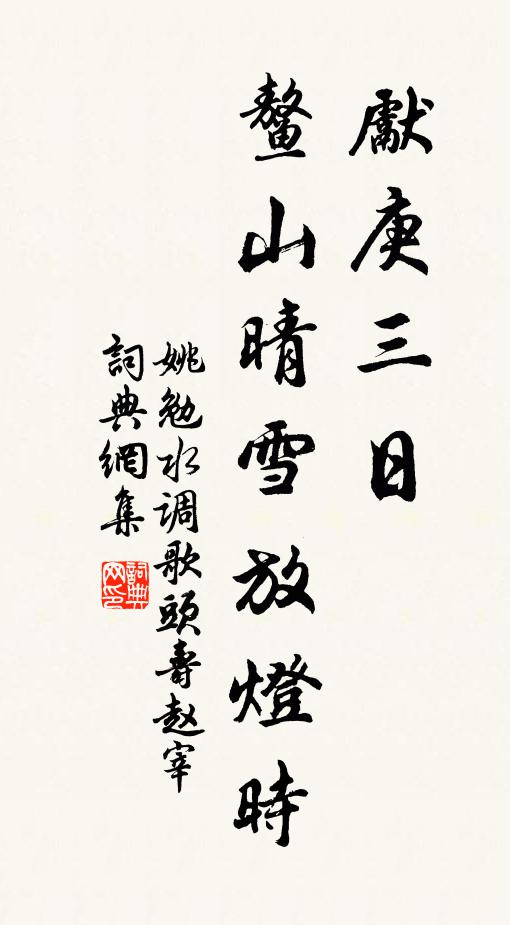 獻庚三日
鰲山晴雪放燈時
姚勉水调歌頭壽赵宰
詞典網集
詞典网印